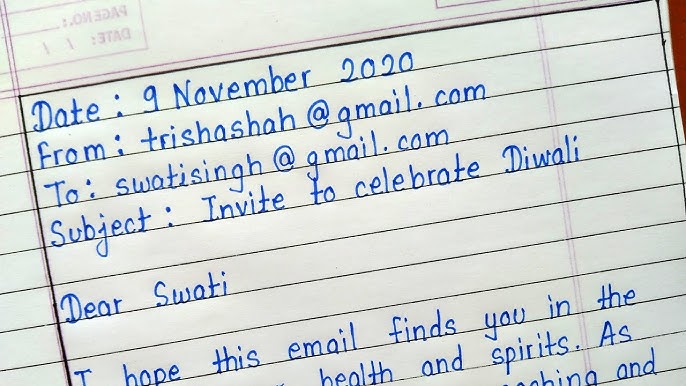 PAGE NO.:
DATE: / /
Date : 9 November 2020
From : trishashah@gmail.com
To : swatisingh@gmail.com
Subject : Invite to celebrate Diwali
Dear Swati
I hope this email finds you in the
health and spirits. As
and